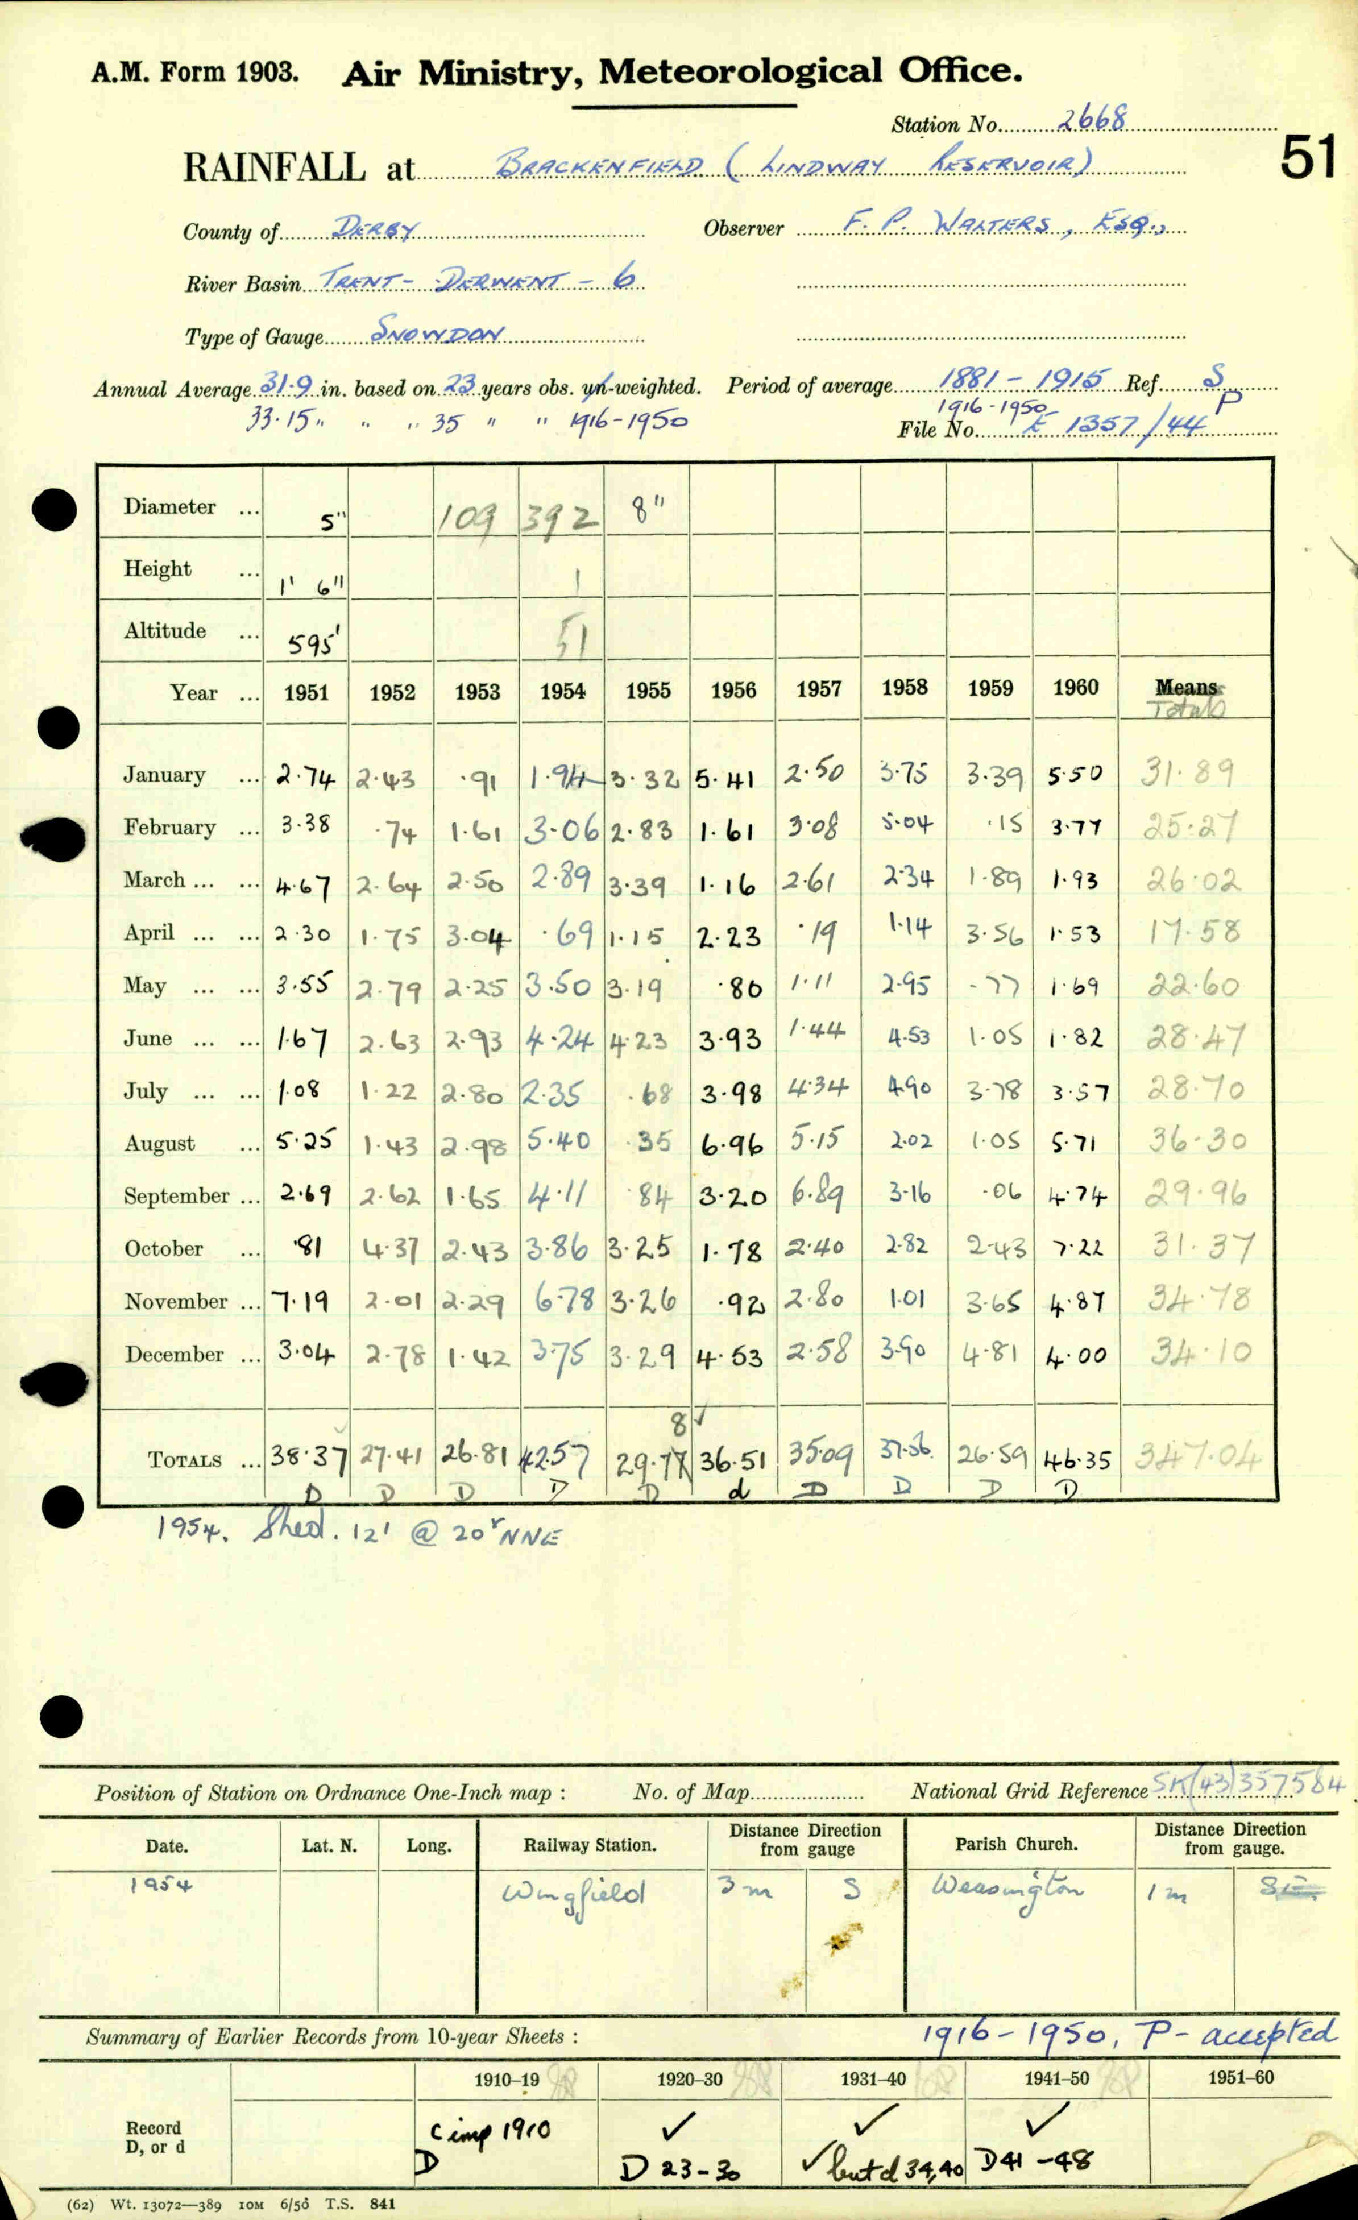 A.M. Form 1903. Air Ministry, Meteorological Office.
Station No. 2668
51
RAINFALL at BRACKENFIELD (LINDWAY RESERVOIR)
County of DERBY Observer F. P. WALTERS, ESQ.,
River Basin TRENT - DERWENT - 6
Type of Gauge SNOWDON
Annual Average 31.9 in. based on 23 years obs. un-weighted. Period of average 1881 - 1915 Ref. S
33.15 " " " 35 " " 1916-1950 1916-1950 P
File No. E 1357/44
Diameter ... 5" 109 392 8"
Height ... 1' 6" 1
Altitude ... 595' 51
Year ... 1951 1952 1953 1954 1955 1956 1957 1958 1959 1960 Means
Totals
January ... 2.74 2.43 .91 1.94 3.32 5.41 2.50 3.75 3.39 5.50 31.89
February ... 3.38 .74 1.61 3.06 2.83 1.61 3.08 5.04 .15 3.77 25.27
March ... ... 4.67 2.64 2.50 2.89 3.39 1.16 2.61 2.34 1.89 1.93 26.02
April ... ... 2.30 1.75 3.04 .69 1.15 2.23 .19 1.14 3.56 1.53 17.58
May ... ... 3.55 2.79 2.25 3.50 3.19 .80 1.11 2.95 .77 1.69 22.60
June ... ... 1.67 2.63 2.93 4.24 4.23 3.93 1.44 4.53 1.05 1.82 28.47
July ... ... 1.08 1.22 2.80 2.35 .68 3.98 4.34 4.90 3.78 3.57 28.70
August ... 5.25 1.43 2.98 5.40 .35 6.96 5.15 2.02 1.05 5.71 36.30
September ... 2.69 2.62 1.65 4.11 .84 3.20 6.89 3.16 .06 4.74 29.96
October ... .81 4.37 2.43 3.86 3.25 1.78 2.40 2.82 2.43 7.22 31.37
November ... 7.19 2.01 2.29 6.78 3.26 .92 2.80 1.01 3.65 4.87 34.78
December ... 3.04 2.78 1.42 3.75 3.29 4.53 2.58 3.90 4.81 4.00 34.10
8 ✓
TOTALS ... 38.37 27.41 26.81 42.57 29.77 36.51 35.09 37.56 26.59 46.35 347.04
D D D D D d D D D D
1954. Shed. 12' @ 20' NNE
Position of Station on Ordnance One-Inch map : No. of Map National Grid Reference SK(43)357584
Date. Lat. N. Long. Railway Station. Distance from Direction gauge Parish Church. Distance from Direction gauge.
1954 Wingfield 3 m S Wessington 1 m SE
Summary of Earlier Records from 10-year Sheets : 1916-1950, P - accepted
1910–19 1920–30 1931–40 1941–50 1951–60
Record D, or d
C imp 1910 ✓ ✓ ✓
D D 23-30 ✓ but d 34,40 D 41 - 48
(62) Wt. 13072—389 10M 6/50 T.S. 841